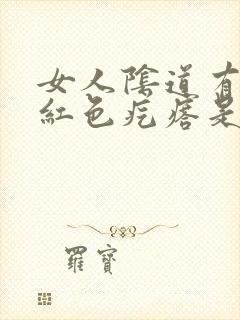 女人陰道有
紅色疙瘩是
羅寶